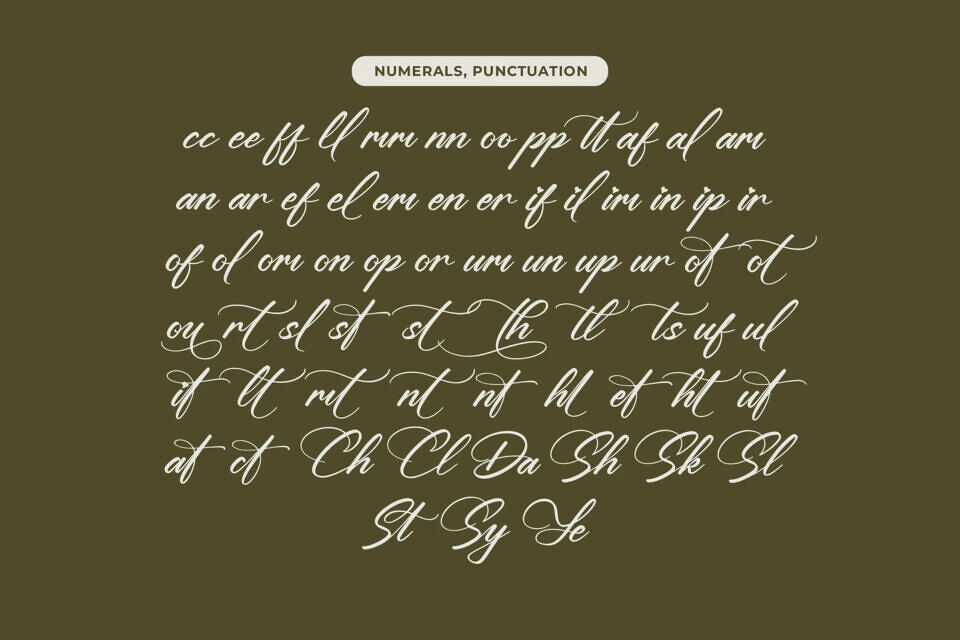 NUMERALS, PUNCTUATION
cc ee ff ll mm nn oo pp tt af al am
an ar ef el em en er if il im in ip ir
of ol om on op or um un up ur of ot
ou rt sl sf st th tl ts uf ul
if lt mt nt nf hl ef ht uf
af cf Ch Cl Da Sh Sk Sl
St Sy Ye